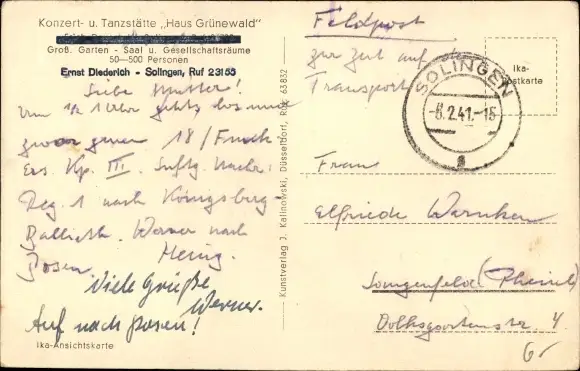 Konzert- u. Tanzstätte „Haus Grünewald"
Groß. Garten - Saal u. Gesellschaftsräume
50—500 Personen
Ernst Diederich - Solingen, Ruf 23155
Liebe Mutter!
Um 1/2 1 Uhr gehts los und
zwar 18/Funk-
Ers. Kp. III. Luftg. Nachr.
Reg. 1 nach Königsberg-
Ballieth. Werner nach
Posen. Heinz.
Viele Grüße
Werner.
Auf nach Posen!
Ika-Ansichtskarte
Kunstverlag J. Kalinowski, Düsseldorf, Ruf 63832
Feldpost
zur Zeit auf dem
Transport
Ika-
Postkarte
SOLINGEN
-5.2.41.-15
Frau
Elfriede
Langenfeld (Rheinl.
Volksgartenstr. 4